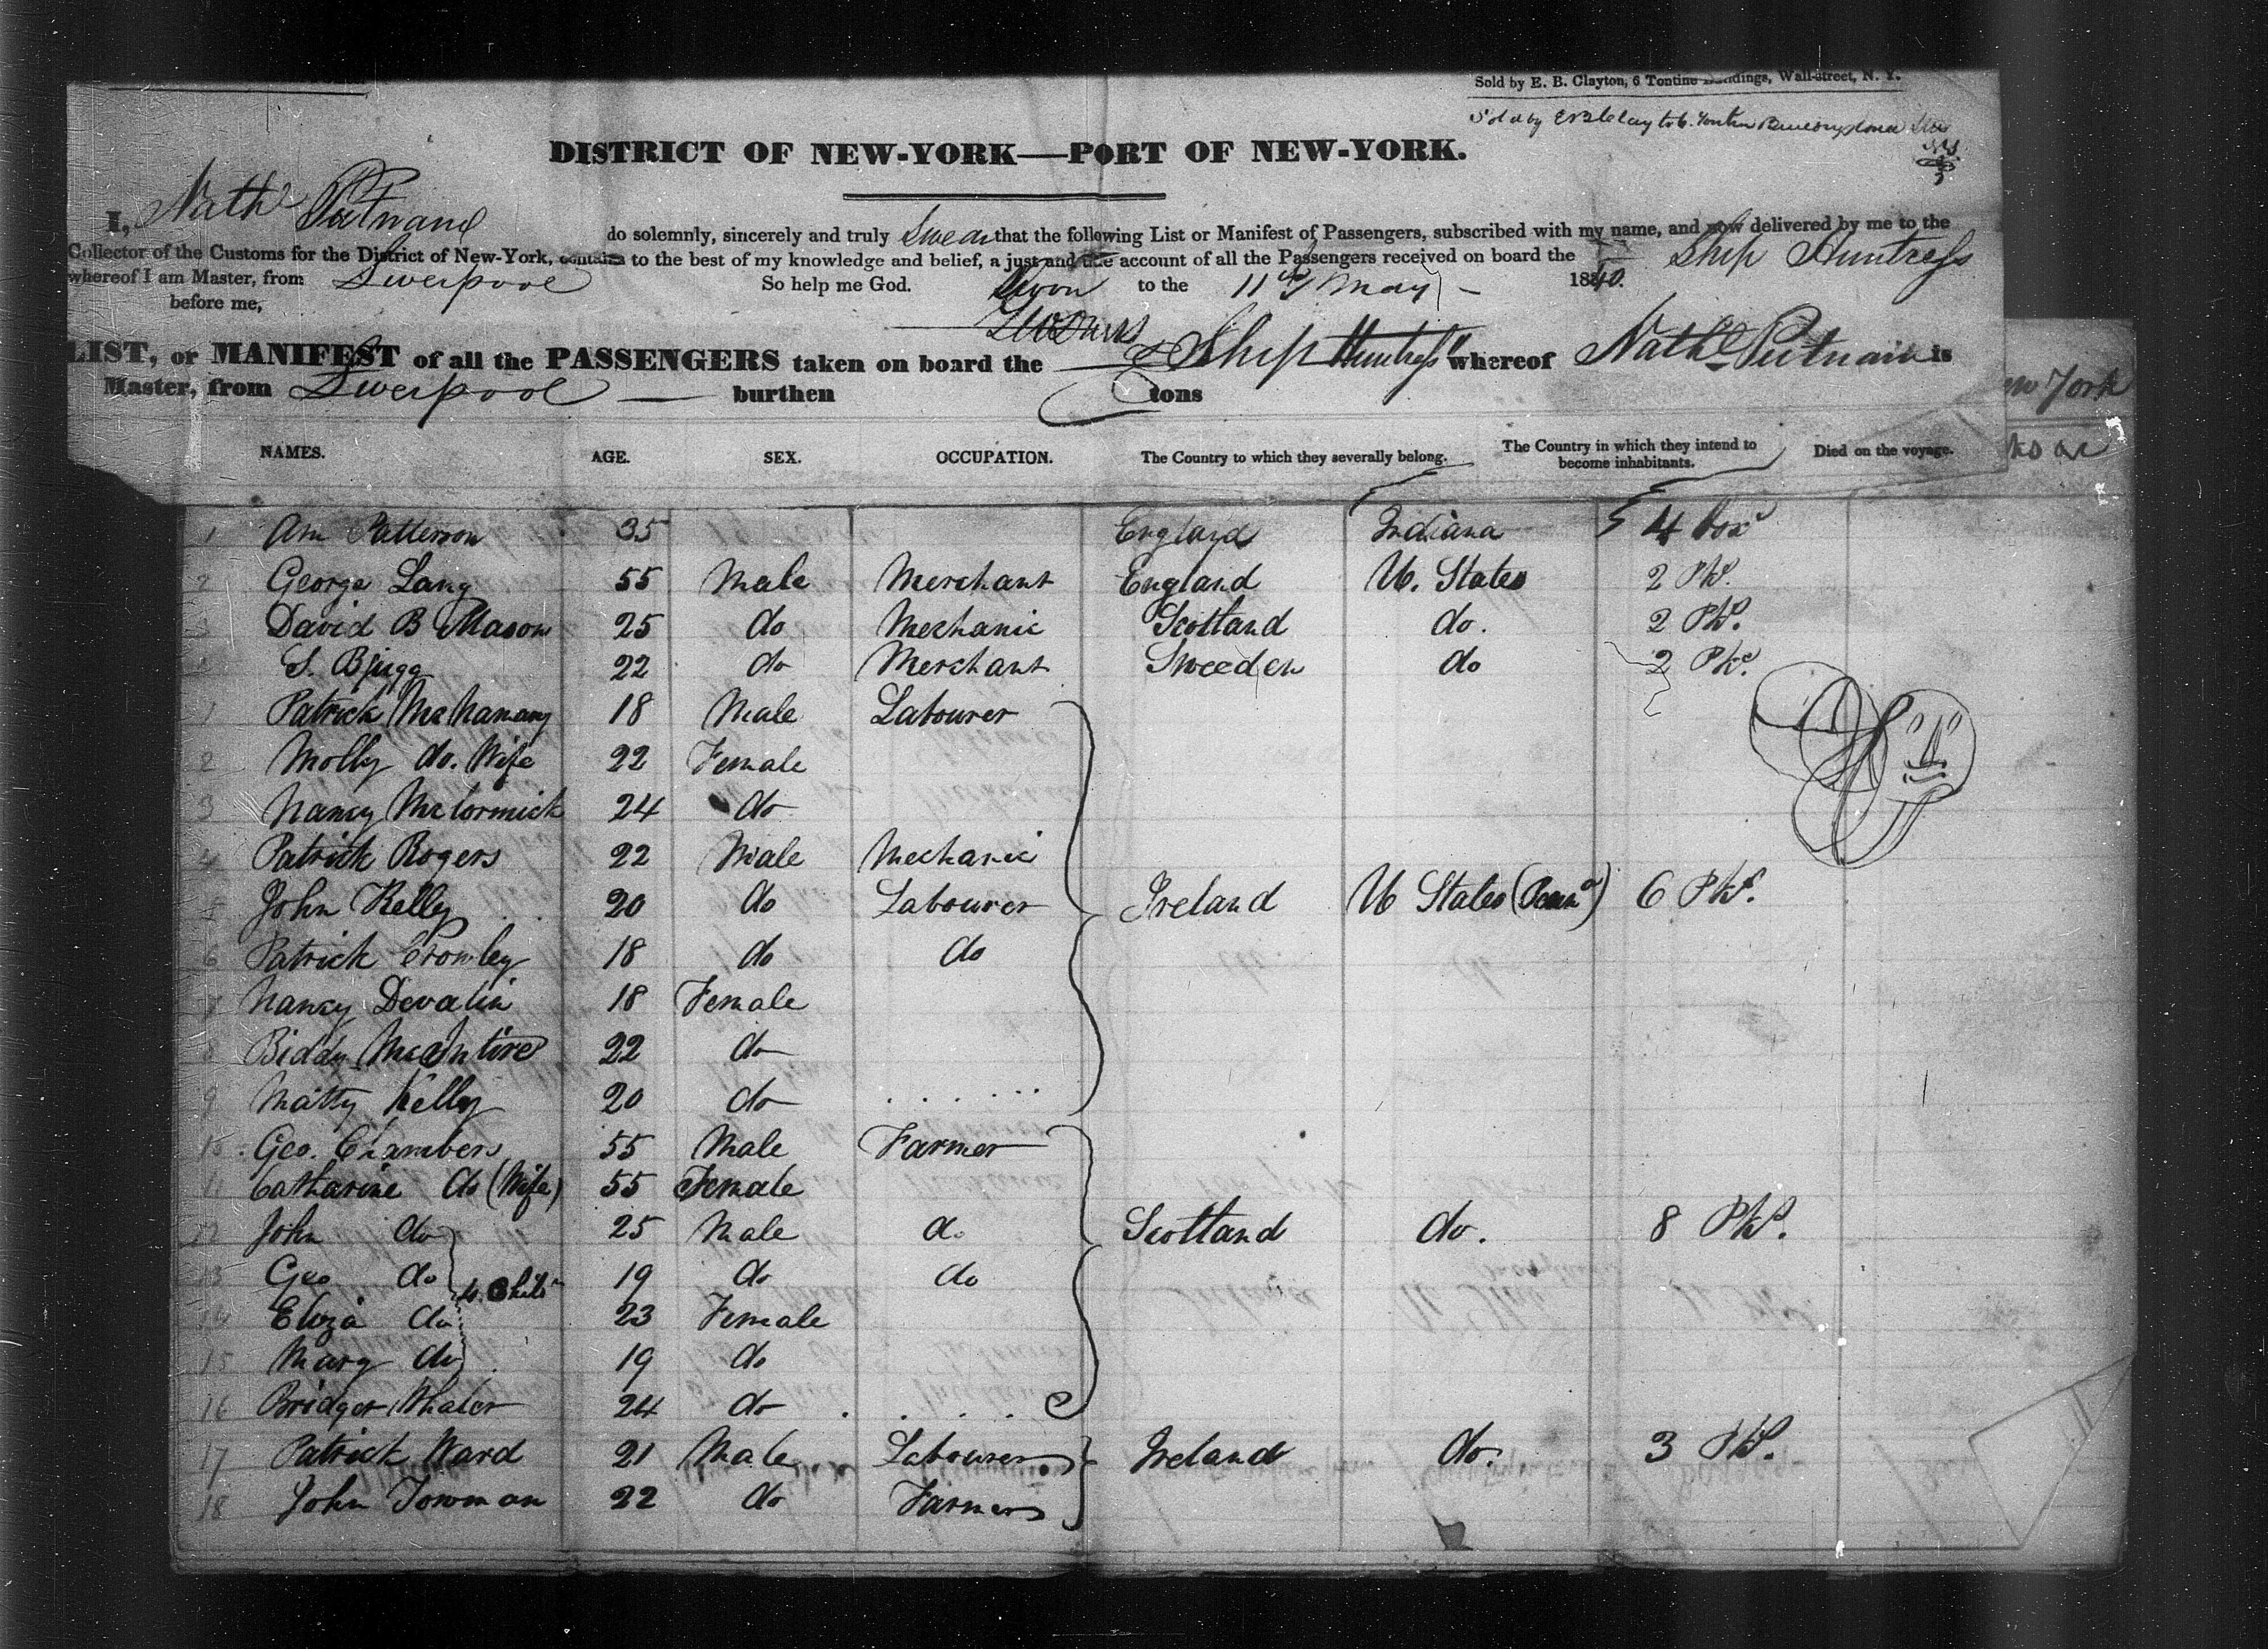 Sold by E. B. Clayton, 6 Tontine Buildings, Wall-street, N. Y.
Sold by
DISTRICT OF NEW-YORK—PORT OF NEW-YORK.
I, Nathl Putnam do solemnly, sincerely and truly Swear that the following List or Manifest of Passengers, subscribed with my name, and now delivered by me to the
Collector of the Customs for the District of New-York, contains to the best of my knowledge and belief, a just and true account of all the Passengers received on board the Ship Huntress
whereof I am Master, from Liverpool So help me God. Sworn to the 11th May 1840.
before me,
LIST, or MANIFEST of all the PASSENGERS taken on board the Ship Huntress whereof Nathl Putnam is
Master, from Liverpool burthen tons
New York
NAMES. AGE. SEX. OCCUPATION. The Country to which they severally belong. The Country in which they intend to become inhabitants. Died on the voyage.
1 Am Patterson 35 England Indiana 4 box
2 George Lang 55 Male Merchant England U. States 2 Pks.
3 David B Mason 25 do Mechanic Scotland do. 2 Pks.
S. Bjugg 22 do Merchant Sweeden do 2 Pks.
1 Patrick McNamany 18 Male Labourer
2 Molly do. Wife 22 Female
3 Nancy McCormick 24 do
4 Patrick Rogers 22 Male Mechanic
5 John Kelly 20 do Labourer Ireland U States (Penna) 6 Pks.
6 Patrick Crowley 18 do do
7 Nancy Devalin 18 Female
8 Biddy McIntire 22 do
9 Matty Kelly 20 do
10 Geo. Chambers 55 Male Farmer
11 Catharine do (Wife) 55 Female
12 John do 25 Male do Scotland do. 8 Pks.
13 Geo do 19 do do
4 Chiln
14 Eliza do 23 Female
15 Mary do 19 do
16 Bridget Whalen 24 do
17 Patrick Ward 21 Male Labourer Ireland do. 3 Pks.
18 John Towman 22 do Farmer